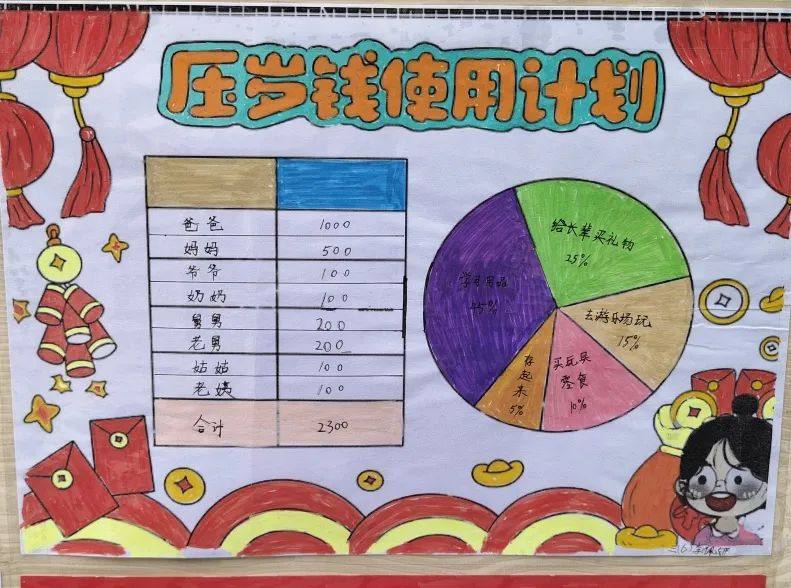 压岁钱使用计划
爸爸 1000
妈妈 500
爷爷 100
奶奶 100
舅男 200
老男 200
姑姑 100
老姨 100
合计 2300
给长辈买礼物
25%
学习用品
45%
去游乐场玩
15%
买玩具
零食
10%
存起来
5%